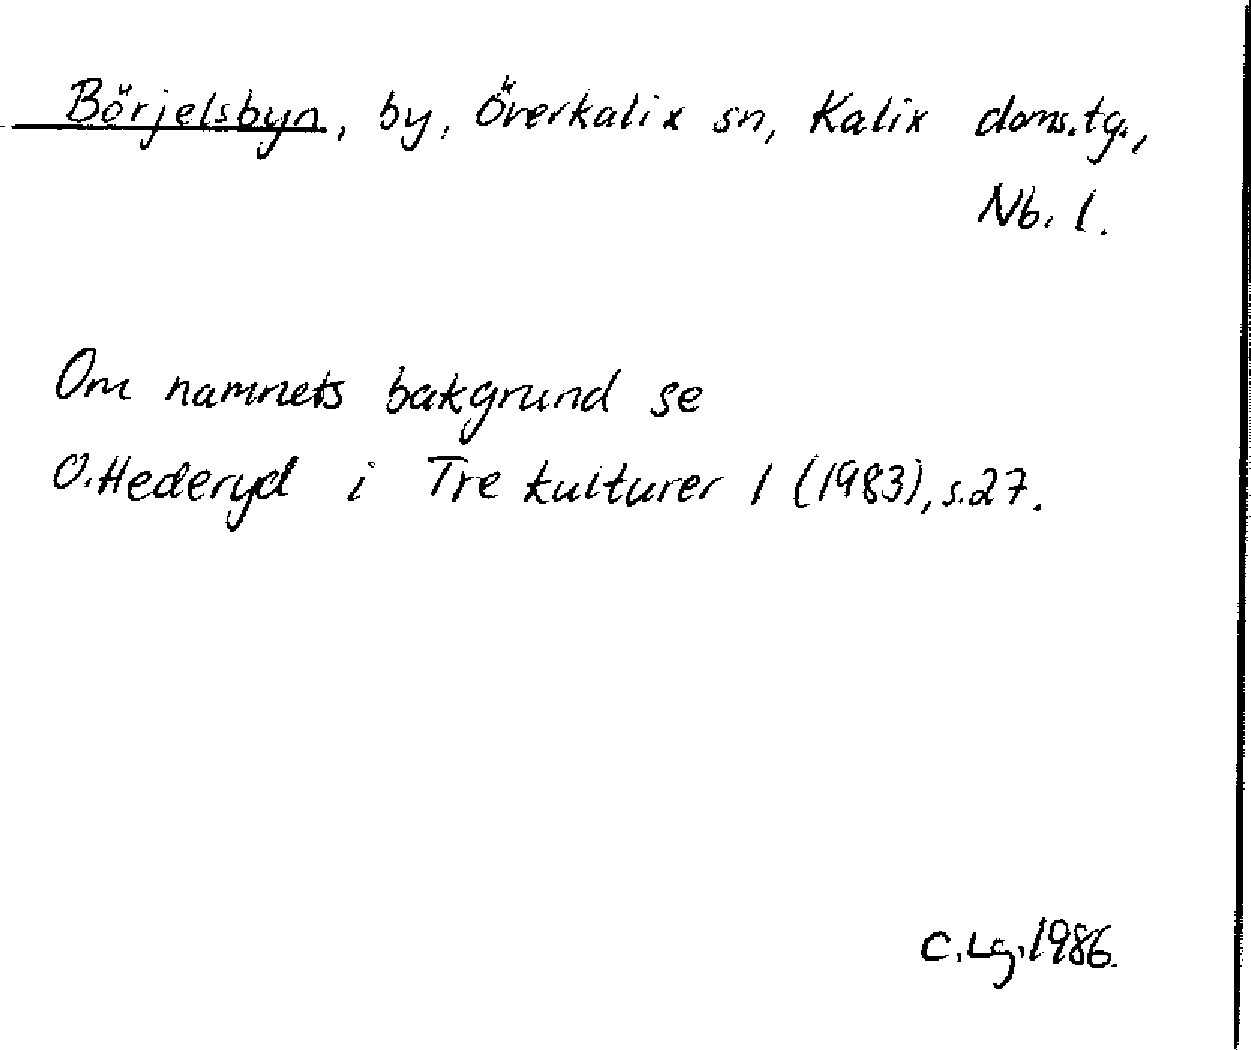 Börjelsbyn, by, Överkalix sn, Kalix doms.tg.,
Nb. l.
Om namnets bakgrund se
O.Hederyd i Tre kulturer 1 (1983), s.27.
C.Lg.1986.